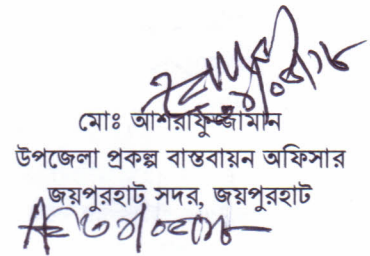 মোঃ আশরাফুজ্জামান
উপজেলা প্রকল্প বাস্তবায়ন অফিসার
জয়পুরহাট সদর, জয়পুরহাট